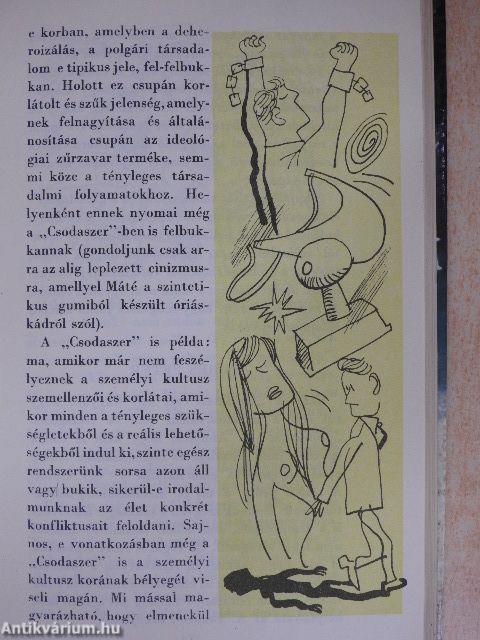 e korban, amelyben a dehe-
roizálás, a polgári társada-
lom e tipikus jele, fel-felbuk-
kan. Holott ez csupán kor-
látolt és szűk jelenség, amely-
nek felnagyítása és általá-
nosítása csupán az ideoló-
giai zűrzavar terméke, sem-
mi köze a tényleges társa-
dalmi folyamatokhoz. He-
lyenként ennek nyomai még
a „Csodaszer"-ben is felbuk-
kannak (gondoljunk csak ar-
ra az alig leplezett cinizmus-
ra, amellyel Máté a szinteti-
kus gumiból készült óriás-
kádról szól).
A „Csodaszer" is példa:
ma, amikor már nem feszé-
lyeznek a személyi kultusz
szemellenzői és korlátai, ami-
kor minden a tényleges szük-
ségletekből és a reális lehető-
ségekből indul ki, szinte egész
rendszerünk sorsa azon áll
vagy bukik, sikerül-e irodal-
munknak az élet konkrét
konfliktusait feloldani. Saj-
nos, e vonatkozásban még a
„Csodaszer" is a személyi
kultusz korának bélyegét vi-
seli magán. Mi mással ma-
gyarázható, hogy elmenekül
Antikvárium.hu